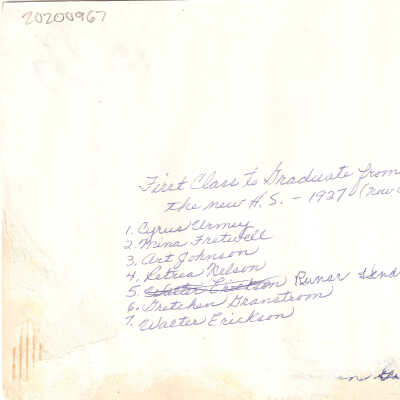 20200967
First Class to Graduate from
the new H.S. - 1927 (now
1. Cyrus Urmey
2. Mina Fretwell
3. Art Johnson
4. Retrea Nelson
5. Walter Erickson Runar Hend
6. Gretchen Granstroom
7. Walter Erickson